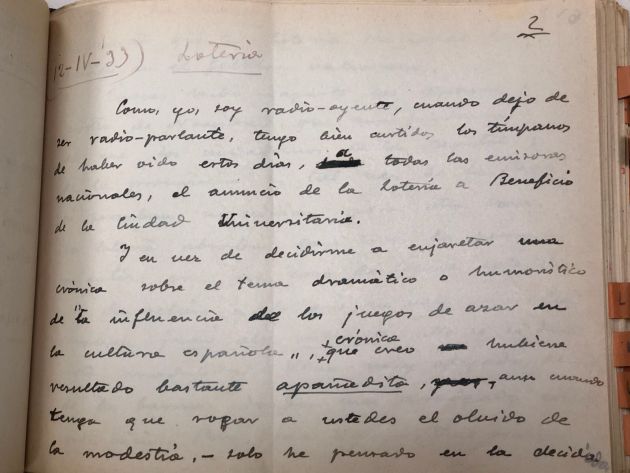 2
(12-IV-33) Lotería
Como, yo, soy radio-oyente, cuando dejo de
ser radio-parlante, tengo bien curtidos los tímpanos
de haber oido estos días, a todas las emisoras
nacionales, el anuncio de la Lotería a Beneficio
de la Ciudad Universitaria.
Y en vez de decidirme a enjaretar una
crónica sobre el tema dramático o humorístico
de "la influencia de los juegos de azar en
la cultura española", crónica
que creo hubiese
resultado bastante apañadita, aun cuando
tenga que rogar a ustedes el olvido de
la modestia, – solo he pensado en la decidi
L